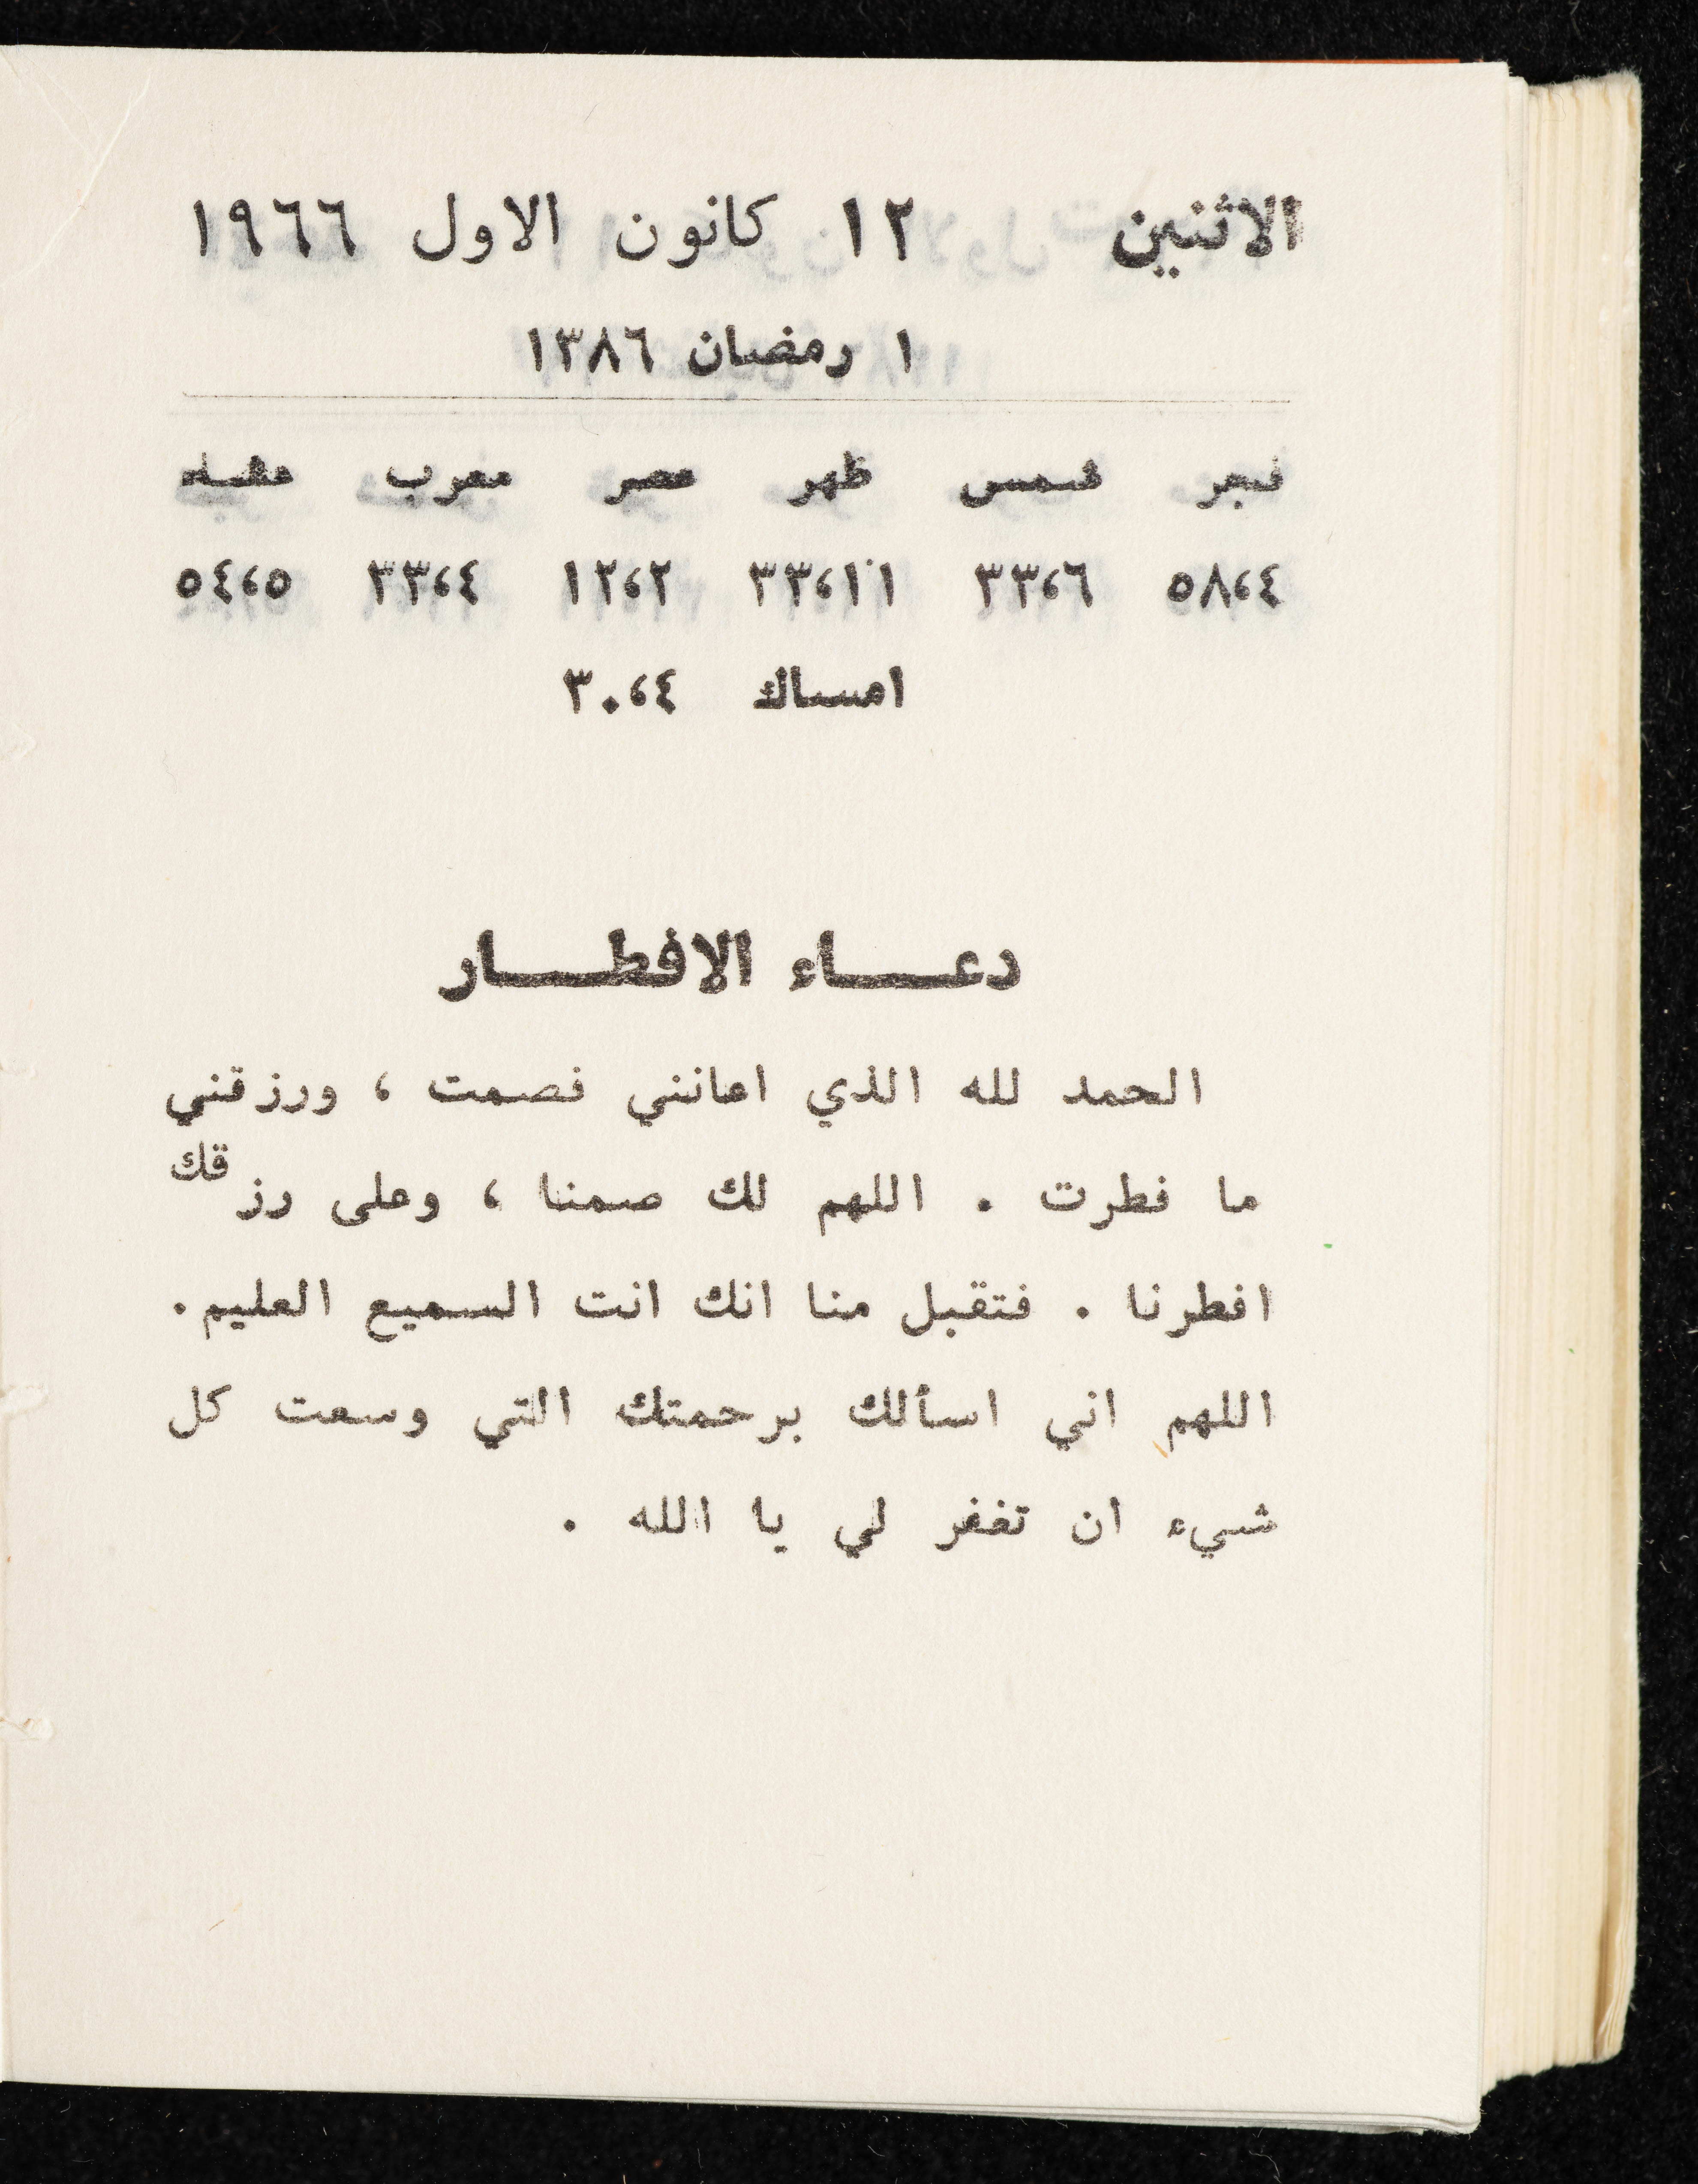 الاثنين ١٢ كانون الاول ١٩٦٦
١ رمضان ١٣٨٦
فجر شمس ظهر عصر مغرب عشاء
٥٨،٤ ٣٣،٦ ٣٣،١١ ١٢،٢ ٣٣،٤ ٥٤،٥
امساك ٣٠،٤
دعاء الافطار
الحمد لله الذي اعانني فصمت ، ورزقني
ما فطرت . اللهم لك صمنا ، وعلى رزقك
افطرنا . فتقبل منا انك انت السميع العليم.
اللهم اني اسألك برحمتك التي وسعت كل
شيء ان تغفر لي يا الله .